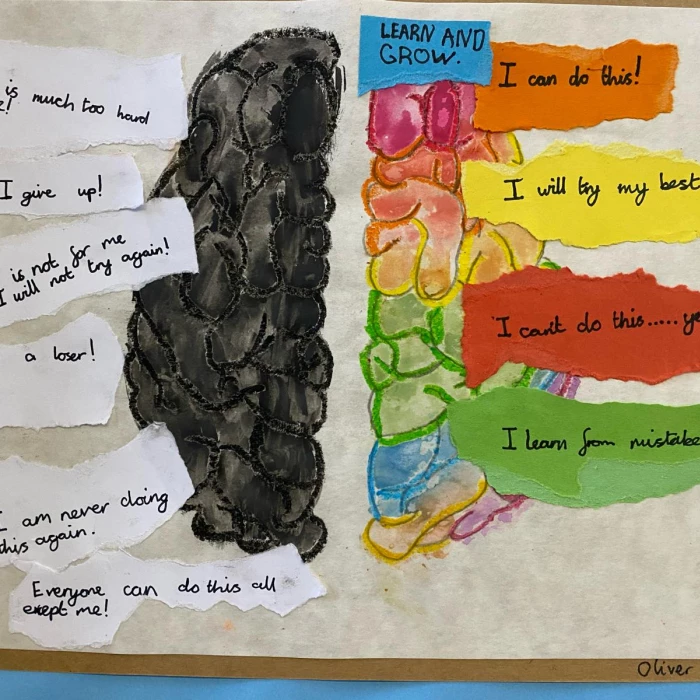 is much too hard
I give up!
is not for me
I will not try again!
a loser!
I am never doing
this again.
Everyone can do this all
exept me!
LEARN AND
GROW.
I can do this!
I will try my best
I can't do this.....ye
I learn from mistake
Oliver